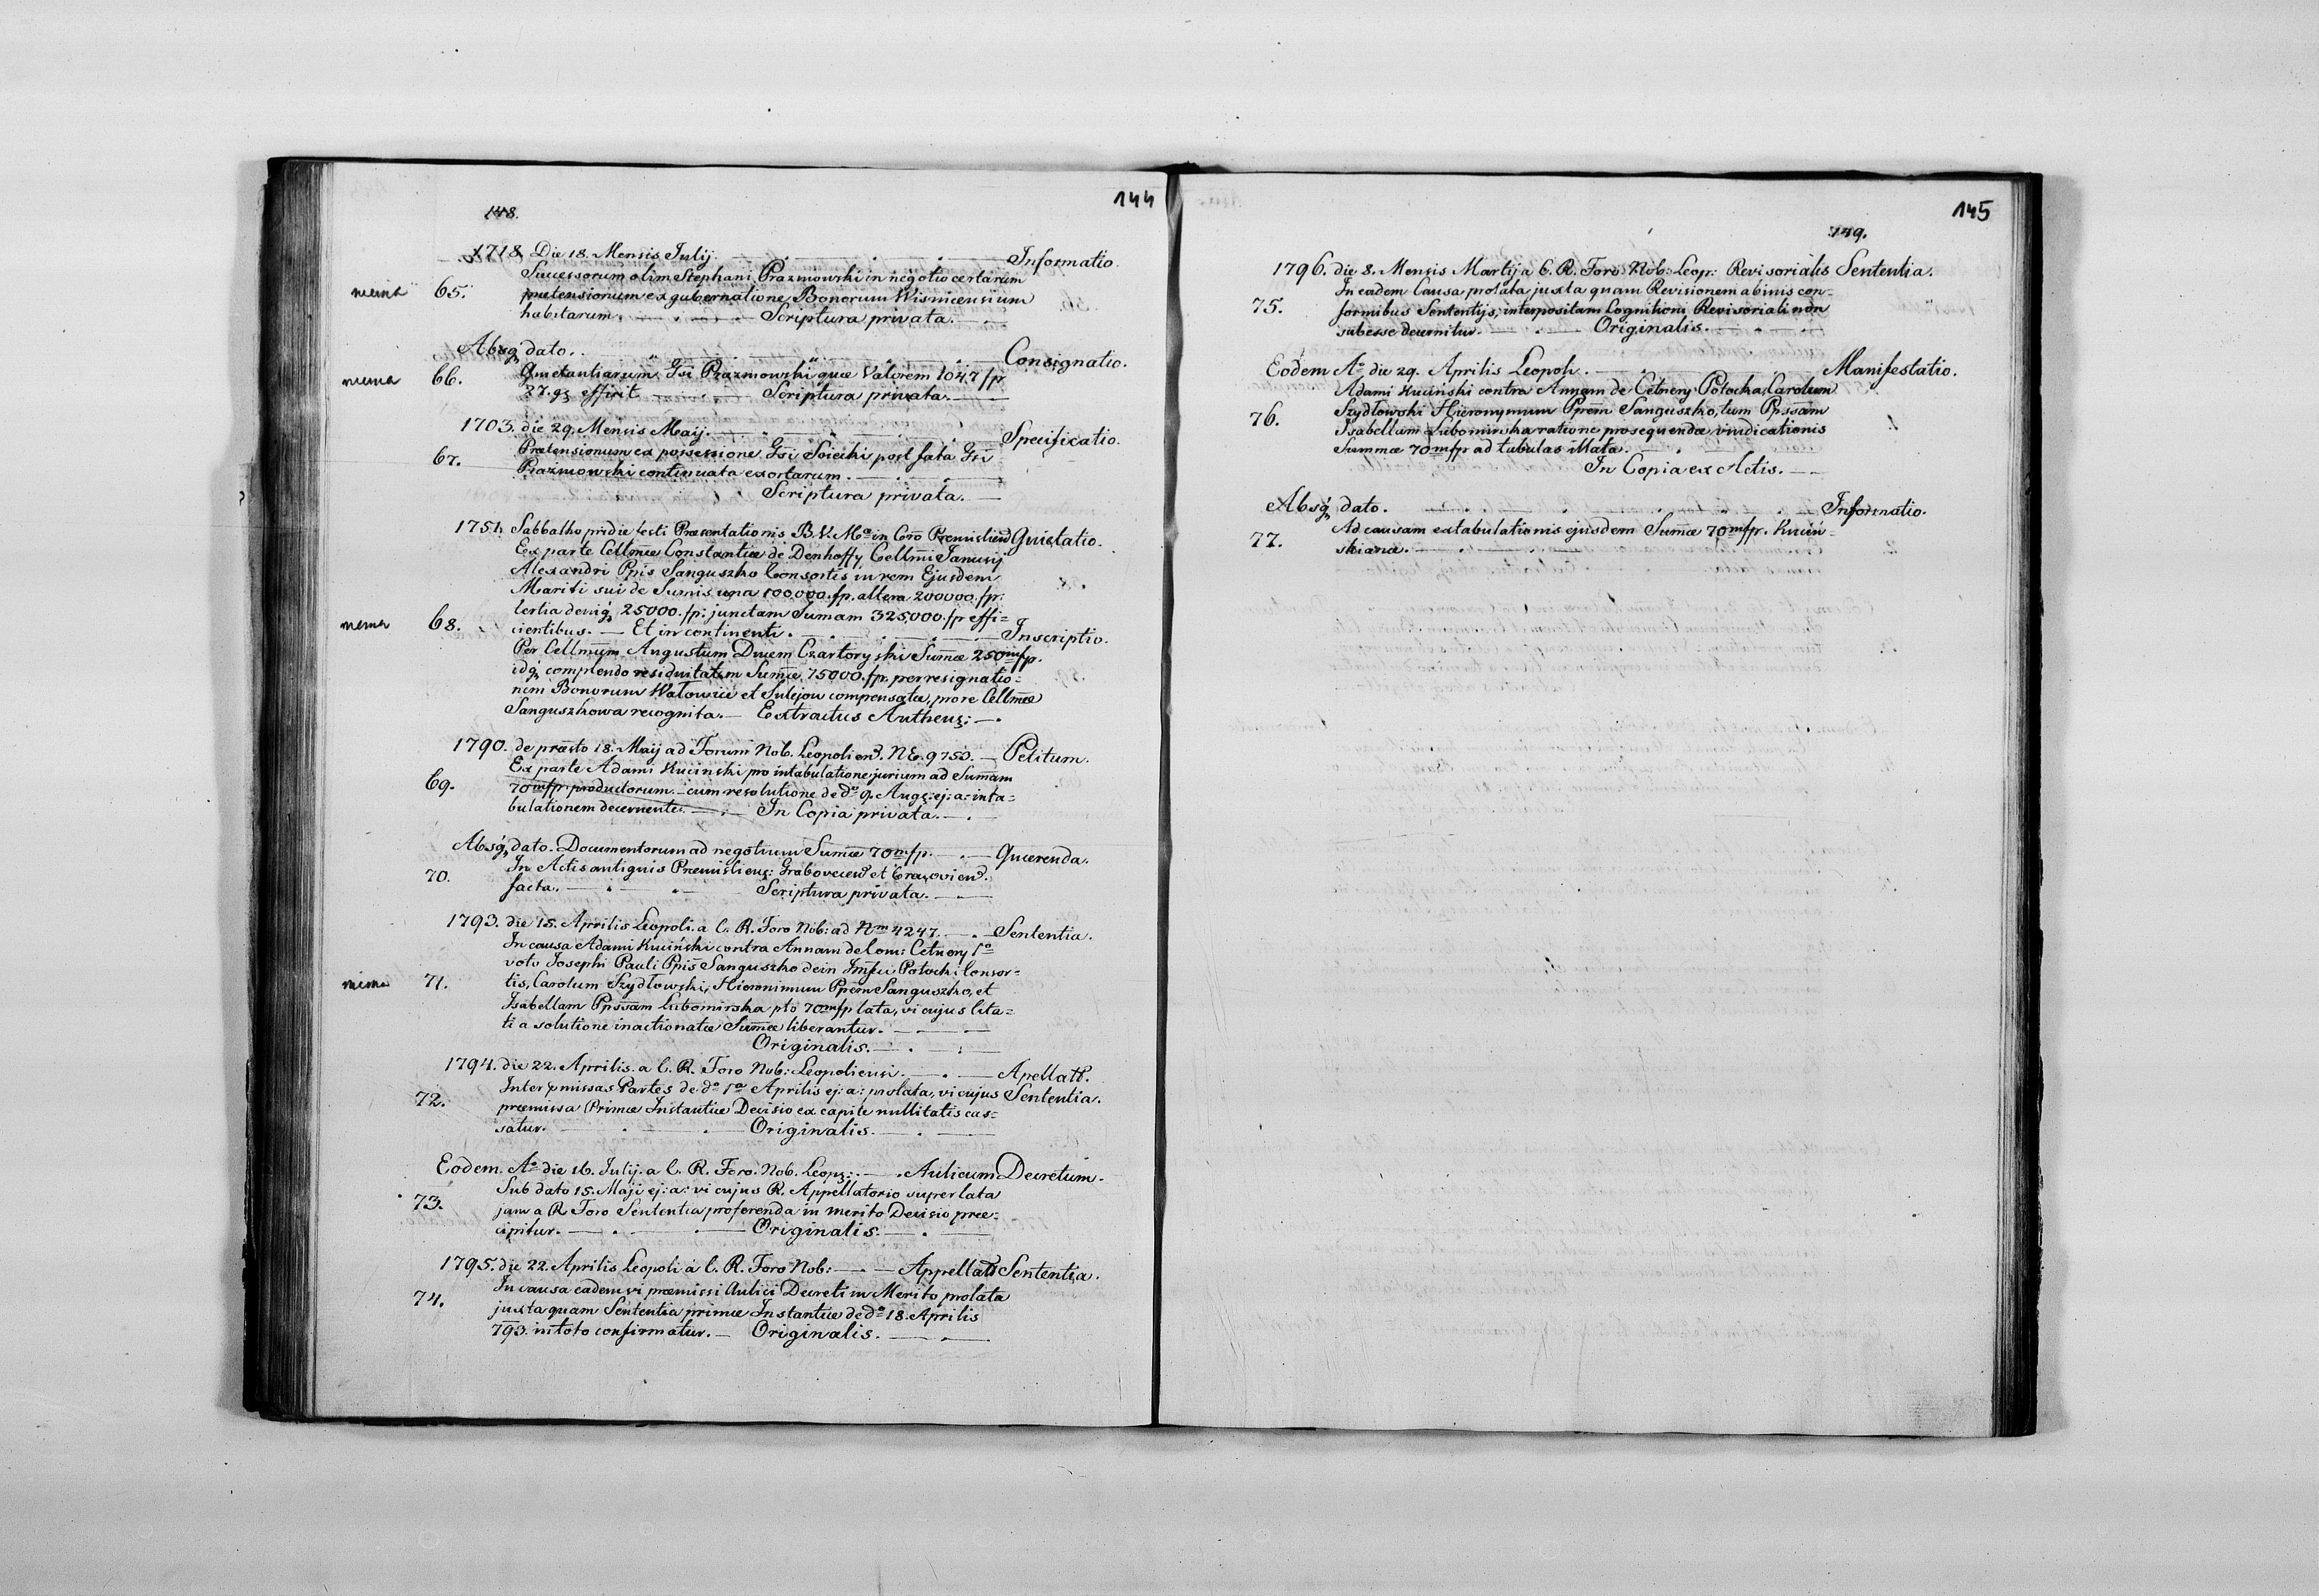 144
148.
1718. Die 18. Mensis Julij. Informatio.
Sucessorum olim Stephani Prazmowski in negotio certarum
nema 65. prætensionum ex gubernatione Bonorum Wisnicensium
habitarum. Scriptura privata.
Absq dato. Consignatio.
nema 66. Quietantiarum Gsi Prazmowski quæ Valorem 1047 fp
27. gs efficit Scriptura privata.
1703. die 29. Mensis Maij. Specificatio.
67. Prætensionum ex possessione Gsi Sciecki post fata Gsi
Prazmowski continuata exortarum.
Scriptura privata.
1751. Sabbatho pridie festi Præsentationis B. V. Mæ in Cero Præmislien Quietatio.
Ex parte Cellmæ Constantiæ de Denhoffy, Cellmi Janusij
Alexandri Ppis Sanguszko Consortis in rem Ejusdem
Mariti sui de Sumis una 100,000. fp. altera 200000. fp.
tertia deniq 25000. fp: junctam Sumam 325,000. fp effi=
nema 68. cientibus. — Et in continenti. Inscriptio.
Per Cellmum Augustum Ducem Czartoryski Sumæ 250m fp.
idq complendo residuitatem Sumæ 75000. fp. per resignatio=
nem Bonorum Watowice et Sulejow compensatæ, pro re Cellmæ
Sanguszkowa recognita. — Extractus Autheng: —
1790. de præsto 18. Maij ad Forum Nob. Leopolien. NE. 9753. — Petitum.
Ex parte Adami Kucinski pro intabulatione jurium ad Sumam
69. 70m fp productorum. — cum resolutione de do 9. Aug: ej: a: inta=
bulationem decernente. In Copia privata.
Absq dato. Documentorum ad negotium Sumæ 70m fp. Quærenda.
70. In Actis antiquis Premisliens: Grabovecien et Cracovien.
facta. Scriptura privata.
1793. die 15. Aprilis Leopoli. a C. R. Foro Nob: ad Nm 4247. Sententia.
In causa Adami Kuciński contra Annam de Com: Cetnery 1o
voto Josephi Pauli Ppis Sanguszko dein Potocki Consor=
nema 71. tis, Carolum Szydłowski, Hieronimum Ppem Sanguszko, et
Isabellam Ppssam Lubomirska pto 70m fp lata, vi cujus Cita=
ti a solutione inactionatæ Sumæ liberantur.
Originalis.
1794. die 22. Aprilis. a C. R. Foro Nob: Leopoliensi. Apellatt.
Inter præmissas Partes de do 1a Aprilis ej: a: prolata, vi cujus Sententia.
72. præmissa Primæ Instantiæ Decisio ex capite nullitatis cas=
satur. Originalis.
Eodem. Ao die 16. Julij. a C. R. Foro. Nob. Leop: Aulicum Decretum.
Sub dato 15. Maji ej: a: vi cujus R. Appellatorio super lata
73. jam a R Foro Sententia proferenda in merito Decisio præ=
cipitur. Originalis.
1795. die 22. Aprilis Leopoli a C. R. Foro Nob: Appellatt Sententia.
In causa eadem vi præmissi Aulici Decreti in Merito prolata
74. juxta quam Sententia primæ Instantiæ de do 18. Aprilis
793. in toto confirmatur. — Originalis.
145
149.
1796. die 8. Mensis Martij a C. R. Foro Nob: Leop: Revisorialis Sententia.
In eadem Causa prolata juxta quam Revisionem a binis con=
75. formibus Sententijs, interpositam Cognitioni Revisoriali non
subesse decernitur. Originalis.
Eodem Ao die 29. Aprilis Leopoli. Manifestatio.
Adami Kuciński contra Annam de Cetnery Potocka, Carolum
76. Szydłowski Hieronymum Ppem Sanguszko, tum Ppssam
Isabellam Lubomirska ratione prosequendæ vindicationis
Summæ 70m fp ad tabulas illata.
In Copia ex Actis.
Absq dato. Informatio.
77. Ad causam extabulationis ejusdem Sumæ 70m fp. Kuciń=
skianæ.